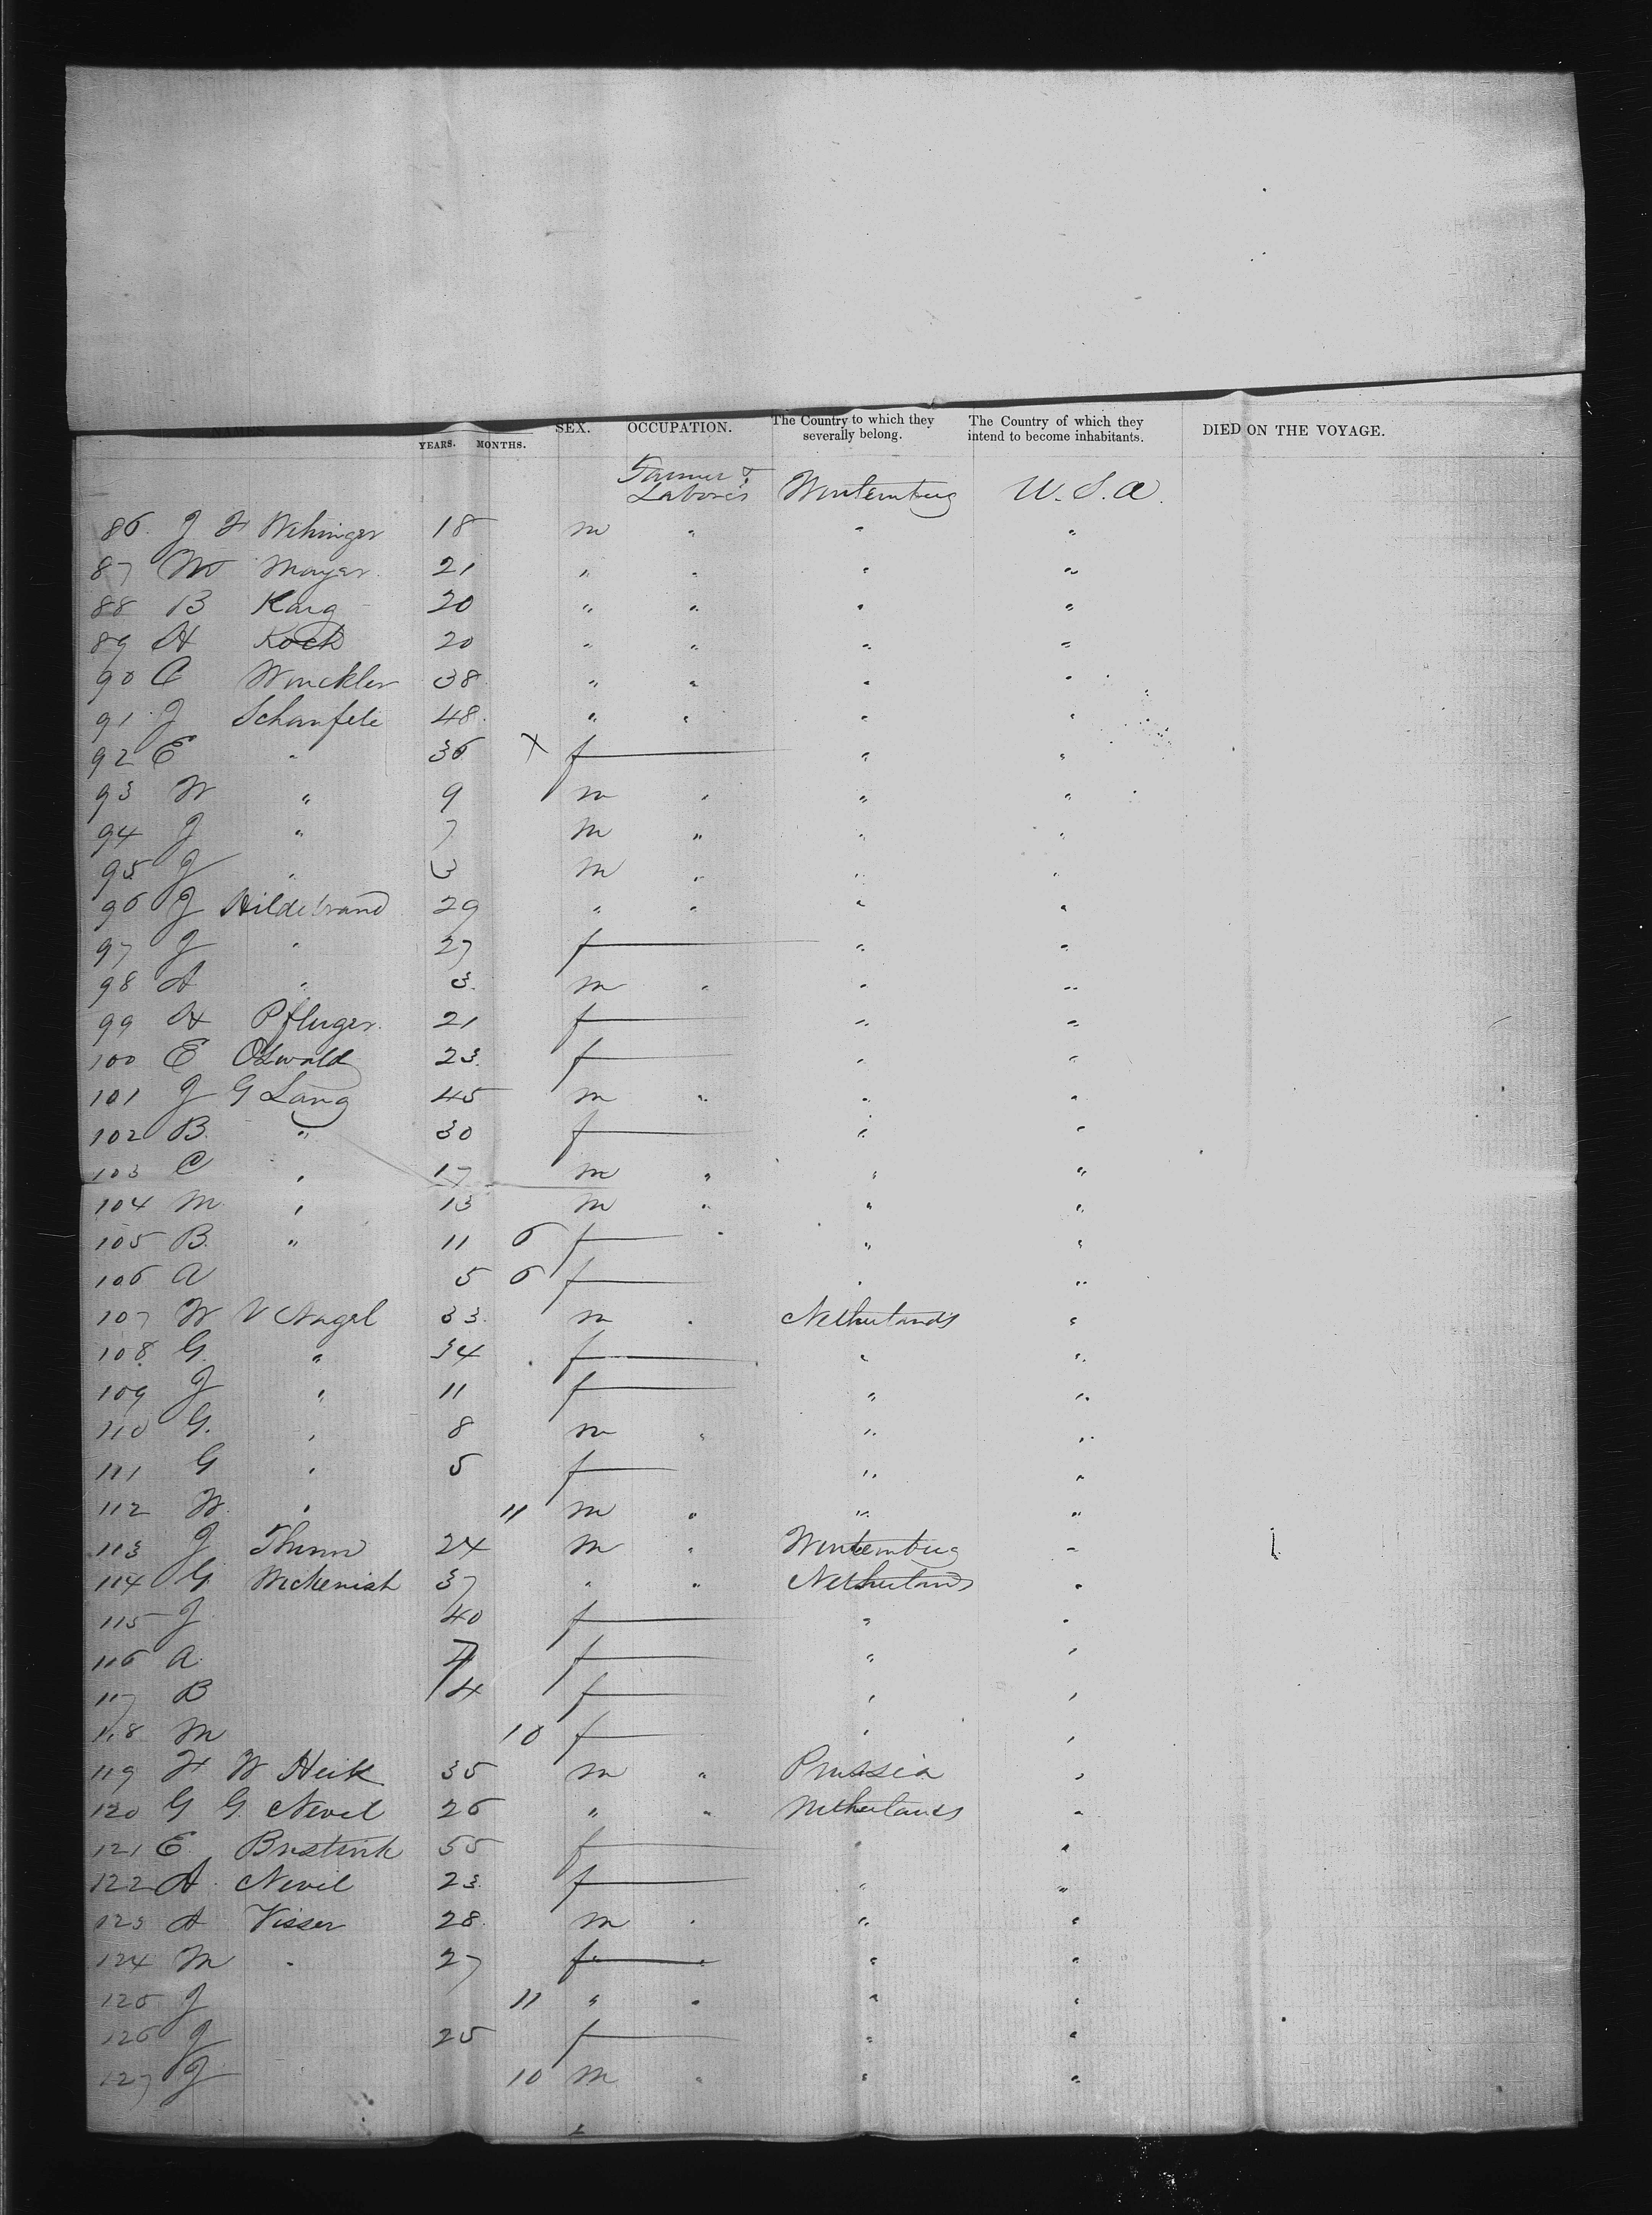 NAMES. YEARS. MONTHS. SEX. OCCUPATION. The Country to which they severally belong. The Country of which they intend to become inhabitants. DIED ON THE VOYAGE.
Farmer & Labores Wurtemburg U.S.A.
86 J F Wehinger 18 m " " "
87 M Mayer 21 " " " "
88 B Karg 20 " " " "
89 H Koch 20 " " " "
90 C Winckler 38 " " " "
91 J Schaufele 48 " " " "
92 E " 36 X f " "
93 W " 9 m " " "
94 J " 7 m " " "
95 J " 3 m " " "
96 J Hildebrand 29 " " " "
97 J " 27 f " "
98 A " 3 m " " "
99 H Pfluger 21 f " "
100 E Oswald 23 f " "
101 J G Lang 45 m " " "
102 B " 30 f " "
103 C " 17 m " " "
104 M " 13 m " " "
105 B " 11 6 f " "
106 A 5 6 f " "
107 W V Nagel 33 m " Netherlands "
108 G " 34 f " "
109 J " 11 f " "
110 G. " 8 m " " "
111 G " 5 f " "
112 W. " 11 m " " "
113 J Thumm 24 m " Wurtemburg "
114 G 37 " " Netherlands "
115 J 40 f " "
116 A 7 f " "
117 B 4 f " "
118 M 10 f " "
119 F W Heik 35 m " Prussia "
120 G G. Nevel 26 " " Netherlands "
121 E 55 f " "
122 A Nevel 23 f " "
123 A Visser 28 m " " "
124 M " 27 f " " "
125 J 11 " " " "
126 J 25 f " "
127 J 10 m " " "